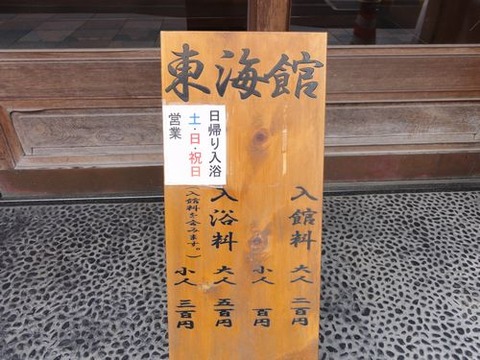 東海館
入館料 大人 二百円
小人 百円
入浴料 大人 五百円
(入館料を含みます。) 小人 三百円
日帰り入浴
土・日・祝日
営業